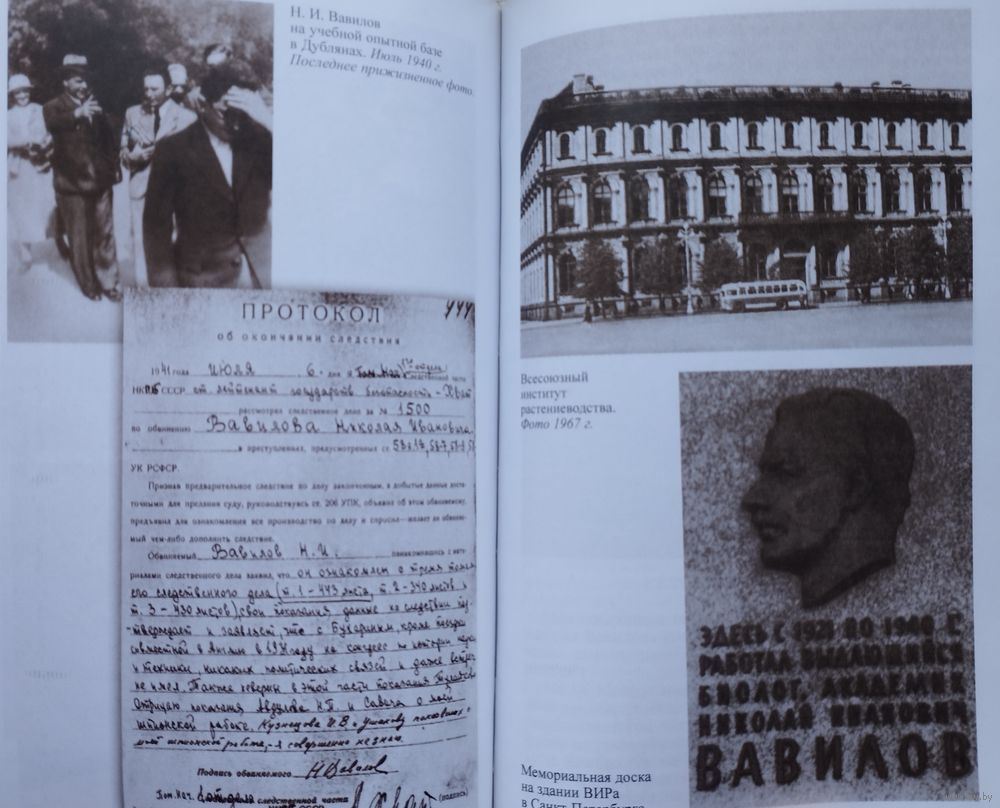 Н. И. Вавилов
на учебной опытной базе
в Дублянах. Июль 1940 г.
Последнее прижизненное фото.
ПРОТОКОЛ
об окончании следствия
1941 года июля 6 дня
СССР ст. лейтенант
рассмотрел следственное дело за № 1500
по обвинению Вавилова Николая Ивановича
в преступлениях, предусмотренных ст.
УК РСФСР.
Признав предварительное следствие по делу законченным, а добытые данные доста-
точными для предания суду, руководствуясь ст. 206 УПК, объявил об этом обвиняемому,
предъявил для ознакомления все производство по делу и спросил—желает ли обвиняе-
мый чем-либо дополнить следствие.
Обвиняемый Вавилов Н. И. ознакомившись с мате-
риалами следственного дела заявил, что он ознакомлен с тремя томами
его следственного дела (т. 1 –
т. 3 – свои показания данные на следствии под-
тверждает и заявляет, что с Бухариным, кроме поездки
совместной в Англию в 1931 году на конгресс по истории науки
и техники, никаких политических связей и даже встреч
не имел. Также неверны в этой части показания
Отрицаю показания Авдулова Н.П. и о моей
шпионской работе. Кузнецова И В и Ушакову
о моей шпионской работе, я совершенно не знаю.
Подпись обвиняемого Н Вавилов
следственной части
(подпись)
Всесоюзный
институт
растениеводства.
Фото 1967 г.
ЗДЕСЬ С 1921 ПО 1940 Г.
РАБОТАЛ ВЫДАЮЩИЙСЯ
БИОЛОГ, АКАДЕМИК
НИКОЛАЙ ИВАНОВИЧ
ВАВИЛОВ
Мемориальная доска
на здании ВИРа
в Санкт-Петербурге